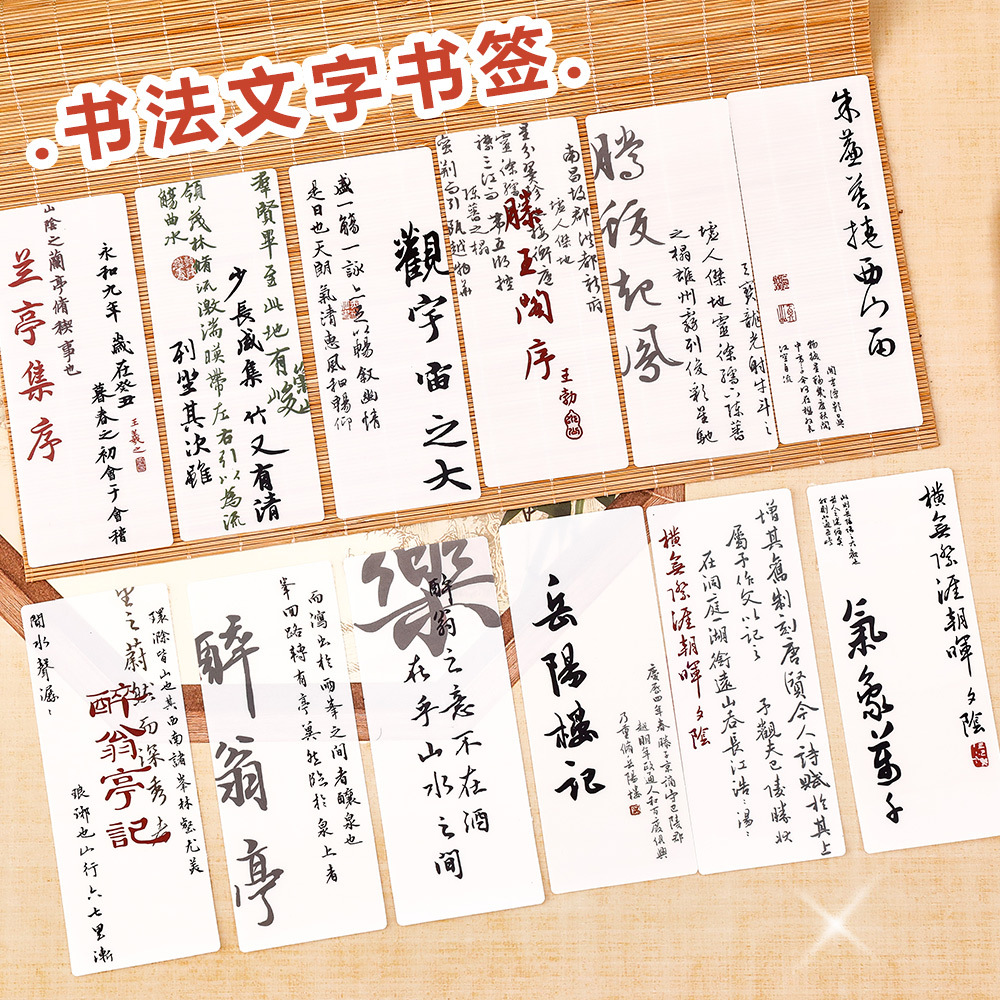 书法文字书签
山陰之蘭亭脩稧事也
兰亭集序
永和九年 歲在癸丑
暮春之初會于會稽
王羲之
羣賢畢至此地有峻
領茂林脩
少長咸集
流激湍暎帶左右引以為流
觴曲水
列坐其次雖
竹又有清
盛一觴一詠上足以暢叙幽情
是日也天朗氣清惠風和暢仰
觀宇宙之大
南昌故郡洪都新府
滕王閣序
王勃
騰蛟起鳳
之榻雄州霧列俊彩星馳
朱簾暮捲西山雨
里之蔚然而深秀者
環滁皆山也其西南諸峯林壑尤美
聞水聲潺
醉翁亭記
瑯琊也山行六七里漸
醉翁亭
而瀉出於兩峯之間者釀泉也
峯回路轉有亭翼然臨於泉上者
樂
醉翁之意不在酒
在乎山水之間
岳陽樓记
慶曆四年春滕子京謫守巴陵郡
越明年政通人和百廢俱興
乃重脩岳陽樓
橫無際涯朝暉夕陰
增其舊制刻唐賢今人詩賦於其上
屬予作文以記之
予觀夫巴陵勝狀
在洞庭一湖銜遠山吞長江浩浩湯湯
橫無際涯朝暉夕陰
氣象萬千